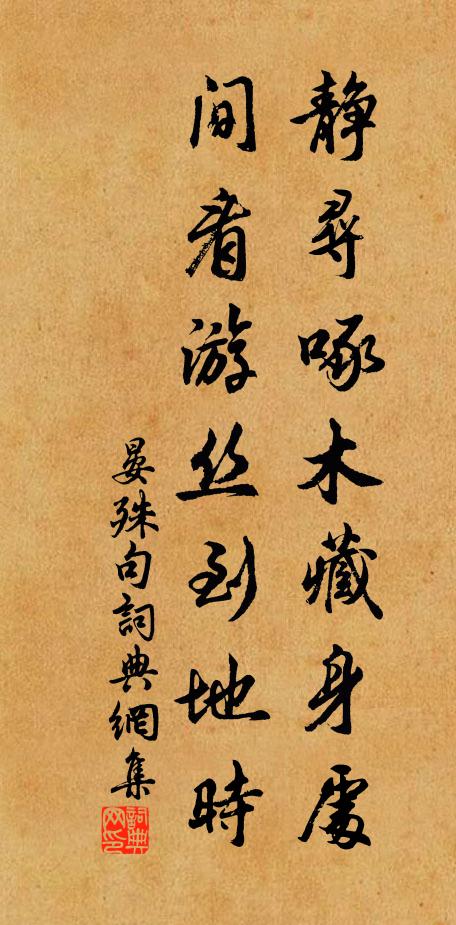 静尋啄木藏身處
间看游丝到地時
晏殊句詞典網集
詞典网印